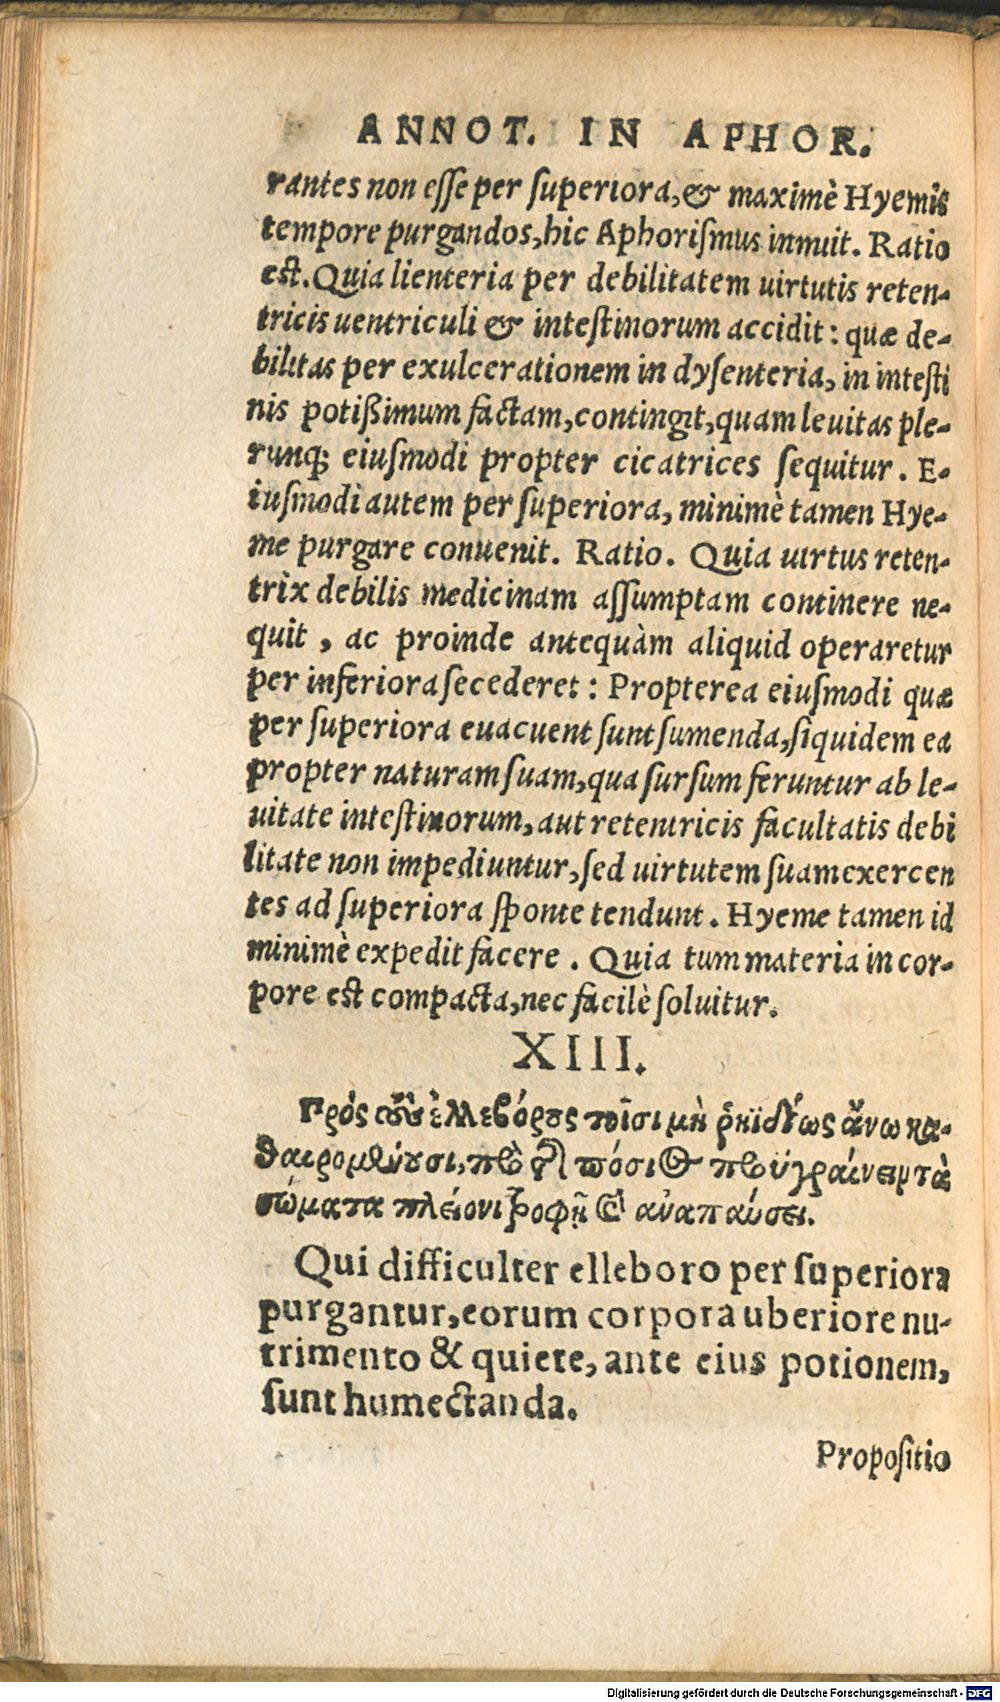 ANNOT. IN APHOR.
rantes non esse per superiora, & maximè Hyemis
tempore purgandos, hic Aphorismus innuit. Ratio
est. Quia lienteria per debilitatem uirtutis reten-
tricis uentriculi & intestinorum accidit: quæ de-
bilitas per exulcerationem in dysenteria, in intesti
nis potißimum factam, contingit, quam leuitas ple-
runq; eiusmodi propter cicatrices sequitur. E-
iusmodi autem per superiora, minimè tamen Hye-
me purgare conuenit. Ratio. Quia uirtus reten-
trix debilis medicinam assumptam continere ne-
quit, ac proinde antequàm aliquid operaretur
per inferiora secederet: Propterea eiusmodi quæ
per superiora euacuent sunt sumenda, siquidem ea
propter naturam suam, qua sursum feruntur ab le-
uitate intestinorum, aut retentricis facultatis debi
litate non impediuntur, sed uirtutem suam exercen
tes ad superiora sponte tendunt. Hyeme tamen id
minimè expedit facere. Quia tum materia in cor-
pore est compacta, nec facilè soluitur.
XIII.
Πρὸς τοὺς ἐλλεβόρους τοῖσι μὴ ῥηϊδίως ἄνω κα-
θαιρομένουσι, πρὸ τῆς πόσιος προϋγραίνειν τὰ
σώματα πλείονι τροφῇ καὶ ἀναπαύσει.
Qui difficulter elleboro per superiora
purgantur, eorum corpora uberiore nu-
trimento & quiete, ante eius potionem,
sunt humectanda.
Propositio
Digitalisierung gefördert durch die Deutsche Forschungsgemeinschaft - DFG